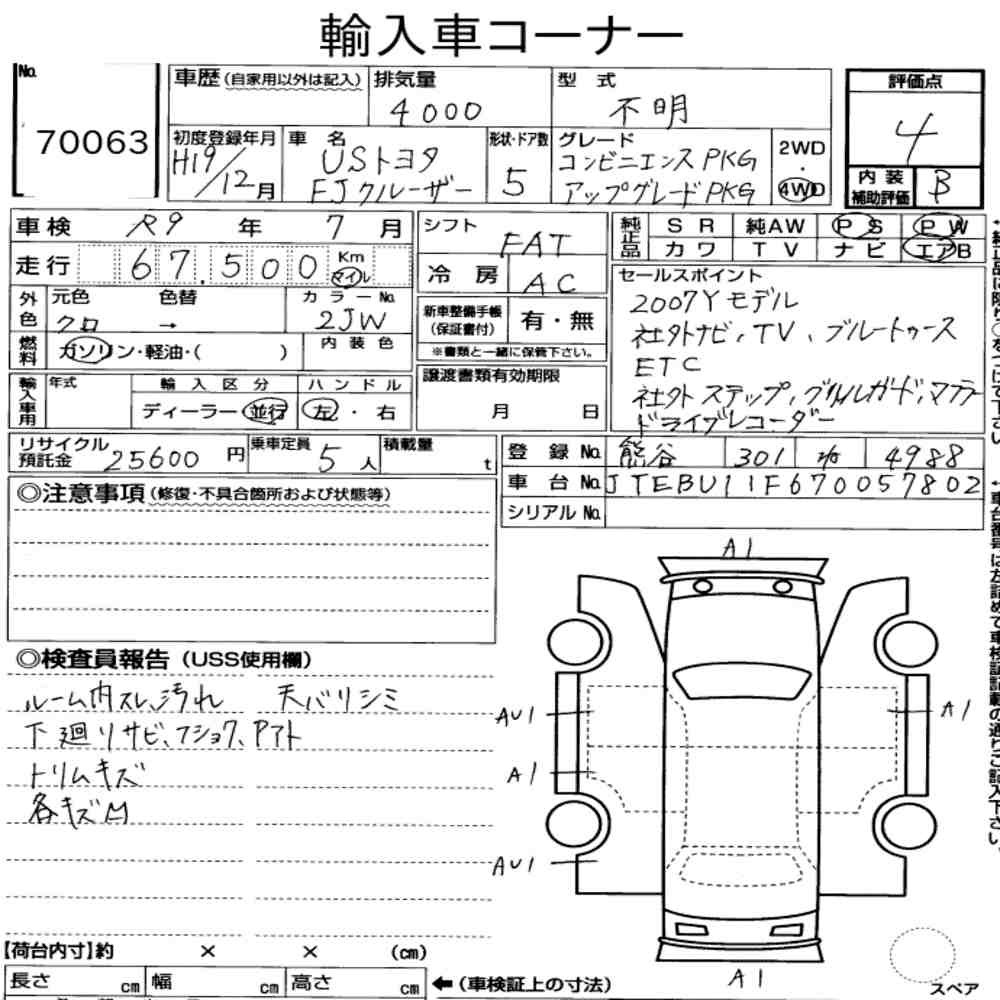 輸入車コーナー
No.
70063
車歴(自家用以外は記入)
排気量
4000
型式
不明
評価点
4
初度登録年月
H19/12月
車名
USトヨタ
FJクルーザー
形状・ドア数
5
グレード
コンビニエンスPKG
アップグレードPKG
2WD
・
4WD
内装
補助評価
B
車検 R9年 7月
走行 67,500 Km マイル
シフト
FAT
冷房 AC
純正品
SR 純AW PS PW
カワ TV ナビ エアB
セールスポイント
2007Yモデル
社外ナビ、TV、ブルートゥース
ETC
社外ステップ、グリルガード、マフラー
ドライブレコーダー
外色
元色 色替 カラーNo.
クロ → 2JW
燃料
ガソリン・軽油・( )
内装色
新車整備手帳
(保証書付)
有・無
※書類と一緒に保管下さい。
輸入車用
年式
輸入区分
ディーラー・並行
ハンドル
左・右
譲渡書類有効期限
月 日
リサイクル
預託金
25600円
乗車定員
5人
積載量
t
登録No. 熊谷 301 4988
車台No. JTEBU11F670057802
シリアルNo.
◎注意事項(修復・不具合箇所および状態等)
◎検査員報告(USS使用欄)
ルーム内スレ、汚れ 天バリシミ
下廻りサビ、フショク、Pアト
トリムキズ
各キズ凹
A1
AU1
A1
A1
AU1
A1
スペア
【荷台内寸】約 × × (cm)
長さ cm 幅 cm 高さ cm
←(車検証上の寸法)
↑車台番号は左詰めで車検証記載の通りご記入下さい。